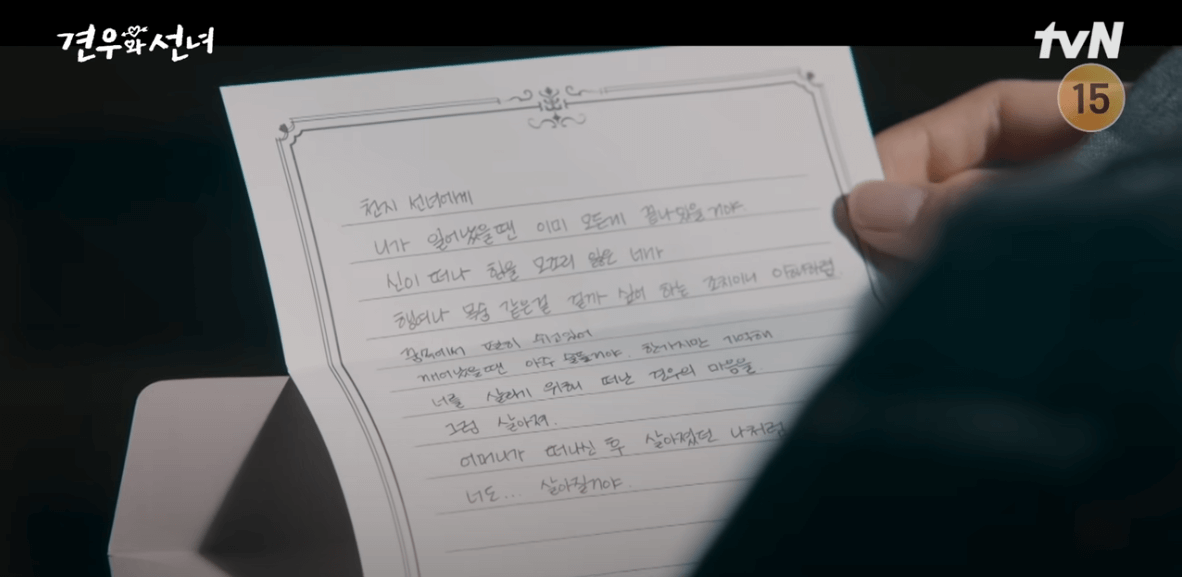 견우와선녀
tvN
15
천지 선녀에게
니가 일어났을땐 이미 모든게 끝나있을거야.
신이 떠나 힘을 모조리 잃은 네가
행여나 목숨 같은걸 걸까 싶어 하는 조치이니 이해하렴.
꿈속에서 편히 쉬고있어
깨어났을땐 아주 슬플거야. 한가지만 기억해
너를 살리기 위해 떠난 견우의 마음을
그럼 살아져.
어머니가 떠나신 후 살아졌던 나처럼
너도... 살아질거야.